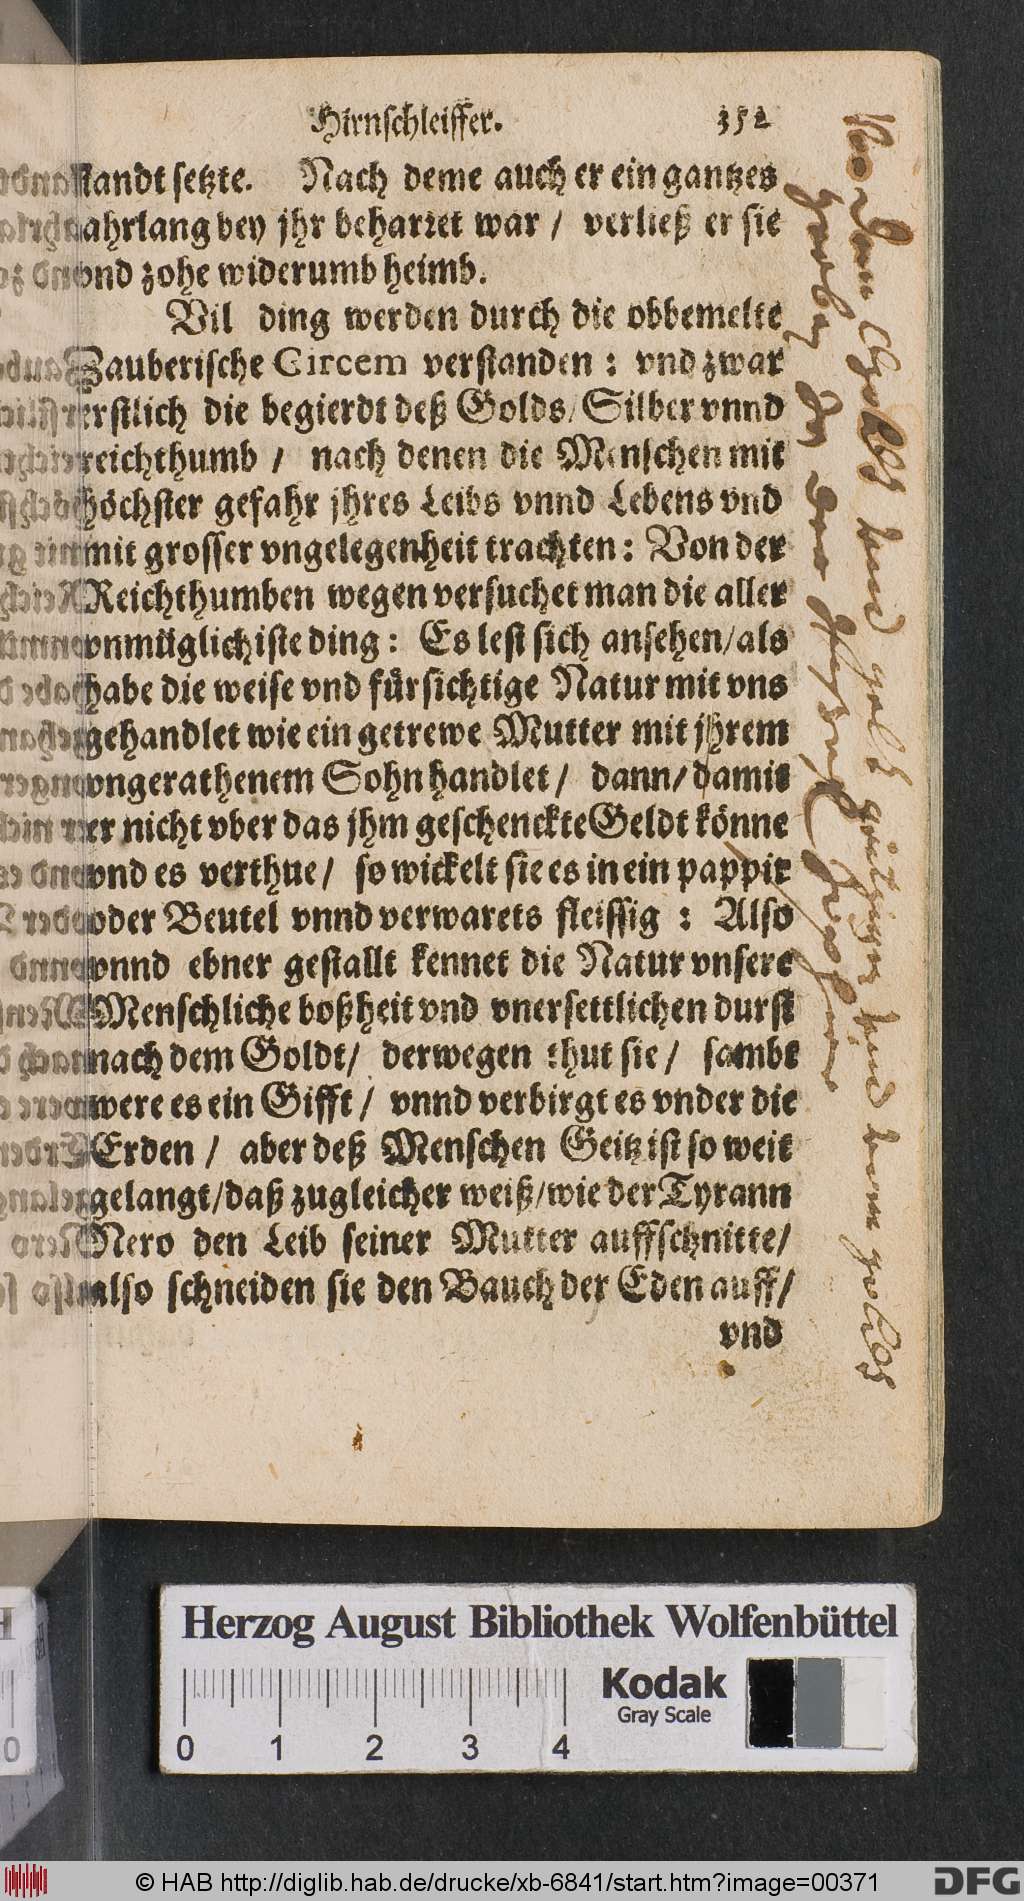 Hirnschleiffer. 352
standt setzte. Nach deme auch er ein gantzes
jahrlang bey jhr beharret war / verließ er sie
vnd zohe widerumb heimb.
Vil ding werden durch die obbemelte
Zauberische Circem verstanden : vnd zwar
erstlich die begierdt deß Golds / Silber vnnd
reichthumb / nach denen die Menschen mit
höchster gefahr jhres Leibs vnnd Lebens vnd
mit grosser vngelegenheit trachten : Von der
Reichthumben wegen versuchet man die aller
vnmüglichiste ding : Es lest sich ansehen / als
habe die weise vnd fürsichtige Natur mit vns
gehandlet wie ein getrewe Mutter mit jhrem
vngerathenem Sohn handlet / dann / damit
er nicht vber das jhm geschenckte Geldt könne
vnd es verthue / so wickelt sie es in ein pappir
oder Beutel vnnd verwarets fleissig : Also
vnnd ebner gestallt kennet die Natur vnsere
Menschliche boßheit vnd vnersettlichen durst
nach dem Goldt / derwegen thut sie / sambt
were es ein Gifft / vnnd verbirgt es vnder die
Erden / aber deß Menschen Geitz ist so weit
gelangt / daß zugleicher weiß / wie der Tyrann
Nero den Leib seiner Mutter auffschnitte /
also schneiden sie den Bauch der Eden auff /
vnd
Herzog August Bibliothek Wolfenbüttel
Kodak
Gray Scale
0 1 2 3 4
© HAB http://diglib.hab.de/drucke/xb-6841/start.htm?image=00371
DFG